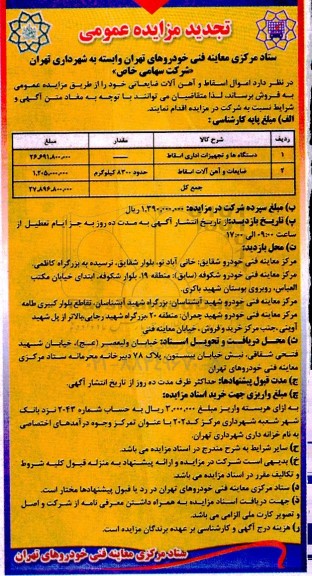 تجدید مزایده عمومی
ستاد مرکزی معاینه فنی خودروهای تهران وابسته به شهرداری تهران
«شرکت سهامی خاص»
در نظر دارد اموال اسقاط و آهن آلات ضایعاتی خود را از طریق مزایده عمومی
به فروش برساند، لذا متقاضیان می توانند با توجه به مفاد متن آگهی و
شرایط نسبت به شرکت در مزایده اقدام نمایند.
الف) مبلغ پایه کارشناسی :
ردیف شرح کالا مقدار مبلغ
۱ دستگاه ها و تجهیزات اداری اسقاط ـــــ ۲۶،۶۹۱،۸۰۰،۰۰۰
۲ ضایعات و آهن آلات اسقاط حدود ۸۳۰۰ کیلوگرم ۱،۲۰۵،۰۰۰،۰۰۰
جمع کل ۲۷،۸۹۶،۸۰۰،۰۰۰
ب) مبلغ سپرده شرکت در مزایده: ۱،۳۹۰،۰۰۰،۰۰۰ ریال
پ) تاریخ بازدید: از تاریخ انتشار آگهی به مدت ده روز به جز ایام تعطیل از
ساعت ۰۹:۰۰ الی ۱۷:۰۰
ت) محل بازدید:
مرکز معاینه فنی خودرو شقایق: خانی آباد نو، بلوار شقایق، نرسیده به بزرگراه کاظمی.
مرکز معاینه فنی خودرو شکوفه (سابق): منطقه ۱۹، بلوار شکوفه، ابتدای خیابان مکتب
العباس، روبروی بوستان شهید باکری.
مرکز معاینه فنی خودرو شهید آبشناسان: بزرگراه شهید آبشناسان، تقاطع بلوار کبیری طامه
مرکز معاینه فنی خودرو شهید چمران: منطقه ۲۰ بزرگراه شهید رجایی، بالاتر از پل شهید
آوینی، جنب مرکز خرید و فروش، خیابان معاینه فنی
ث) محل دریافت و تحویل اسناد: خیابان ولیعصر (عج)، خیابان شهید
فتحی شقاقی، نبش خیابان بیستون، پلاک ۷۸ دبیرخانه محرمانه ستاد مرکزی
معاینه فنی خودروهای تهران
ج) مدت قبول پیشنهادها: حداکثر ظرف مدت ده روز از تاریخ انتشار آگهی.
چ) مبلغ واریزی جهت خرید اسناد مزایده:
به ازای هر بسته واریز مبلغ ۲،۰۰۰،۰۰۰ ریال به حساب شماره ۲۰۴۳ نزد بانک
شهر شعبه شهرداری مرکز کد ۲۰۲ با عنوان تمرکز وجوه درآمدهای اختصاصی
به نام خزانه داری شهرداری تهران.
ح) سایر شرایط به شرح مندرج در اسناد مزایده می باشد.
خ) بدیهی است شرکت در مزایده و ارائه پیشنهاد به منزله قبول کلیه شروط
و تکالیف مقرر در اسناد مزایده می باشد.
د) ستاد مرکزی معاینه فنی خودروهای تهران در رد یا قبول پیشنهادها مختار است.
ذ) جهت دریافت اسناد مزایده به همراه داشتن معرفی نامه از شرکت و اصل و
تصویر کارت ملی الزامی می باشد.
ر) هزینه درج آگهی و کارشناسی بر عهده برندگان مزایده است.
ستاد مرکزی معاینه فنی خودروهای تهران